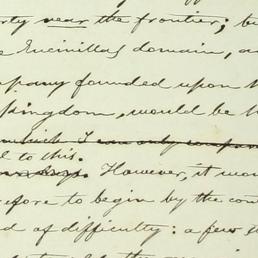 rty near the frontier; bu
e Encinillas domain, a
mpany founded upon t
kingdom, would be t
which I can only compare
l to this.
However, it wou
efore to begin by the con
d of difficulty: a few